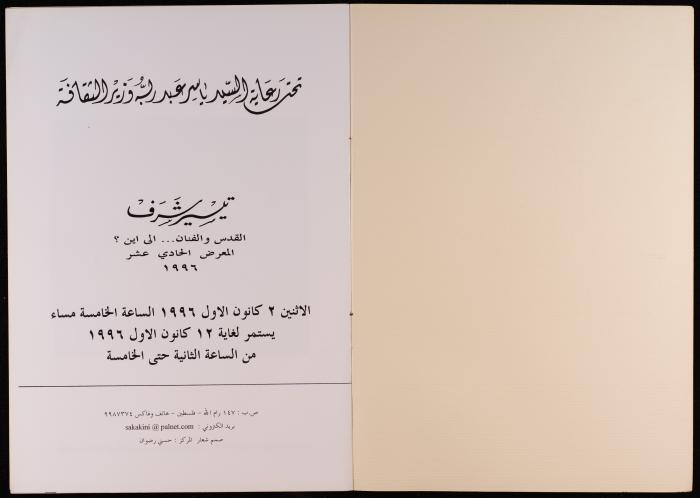 تحت رعاية السيد ياسر عبد ربه وزير الثقافة
تيسير شرف
القدس والفنان... الى اين ؟
المعرض الحادي عشر
١٩٩٦
الاثنين ٢ كانون الاول ١٩٩٦ الساعة الخامسة مساء
يستمر لغاية ١٢ كانون الاول ١٩٩٦
من الساعة الثانية حتى الخامسة
ص.ب : ١٤٧ رام الله - فلسطين - هاتف وفاكس ٩٩٨٧٣٧٤
بريد الكتروني : sakakini @ palnet.com
صمم شعار المركز : حسني رضوان